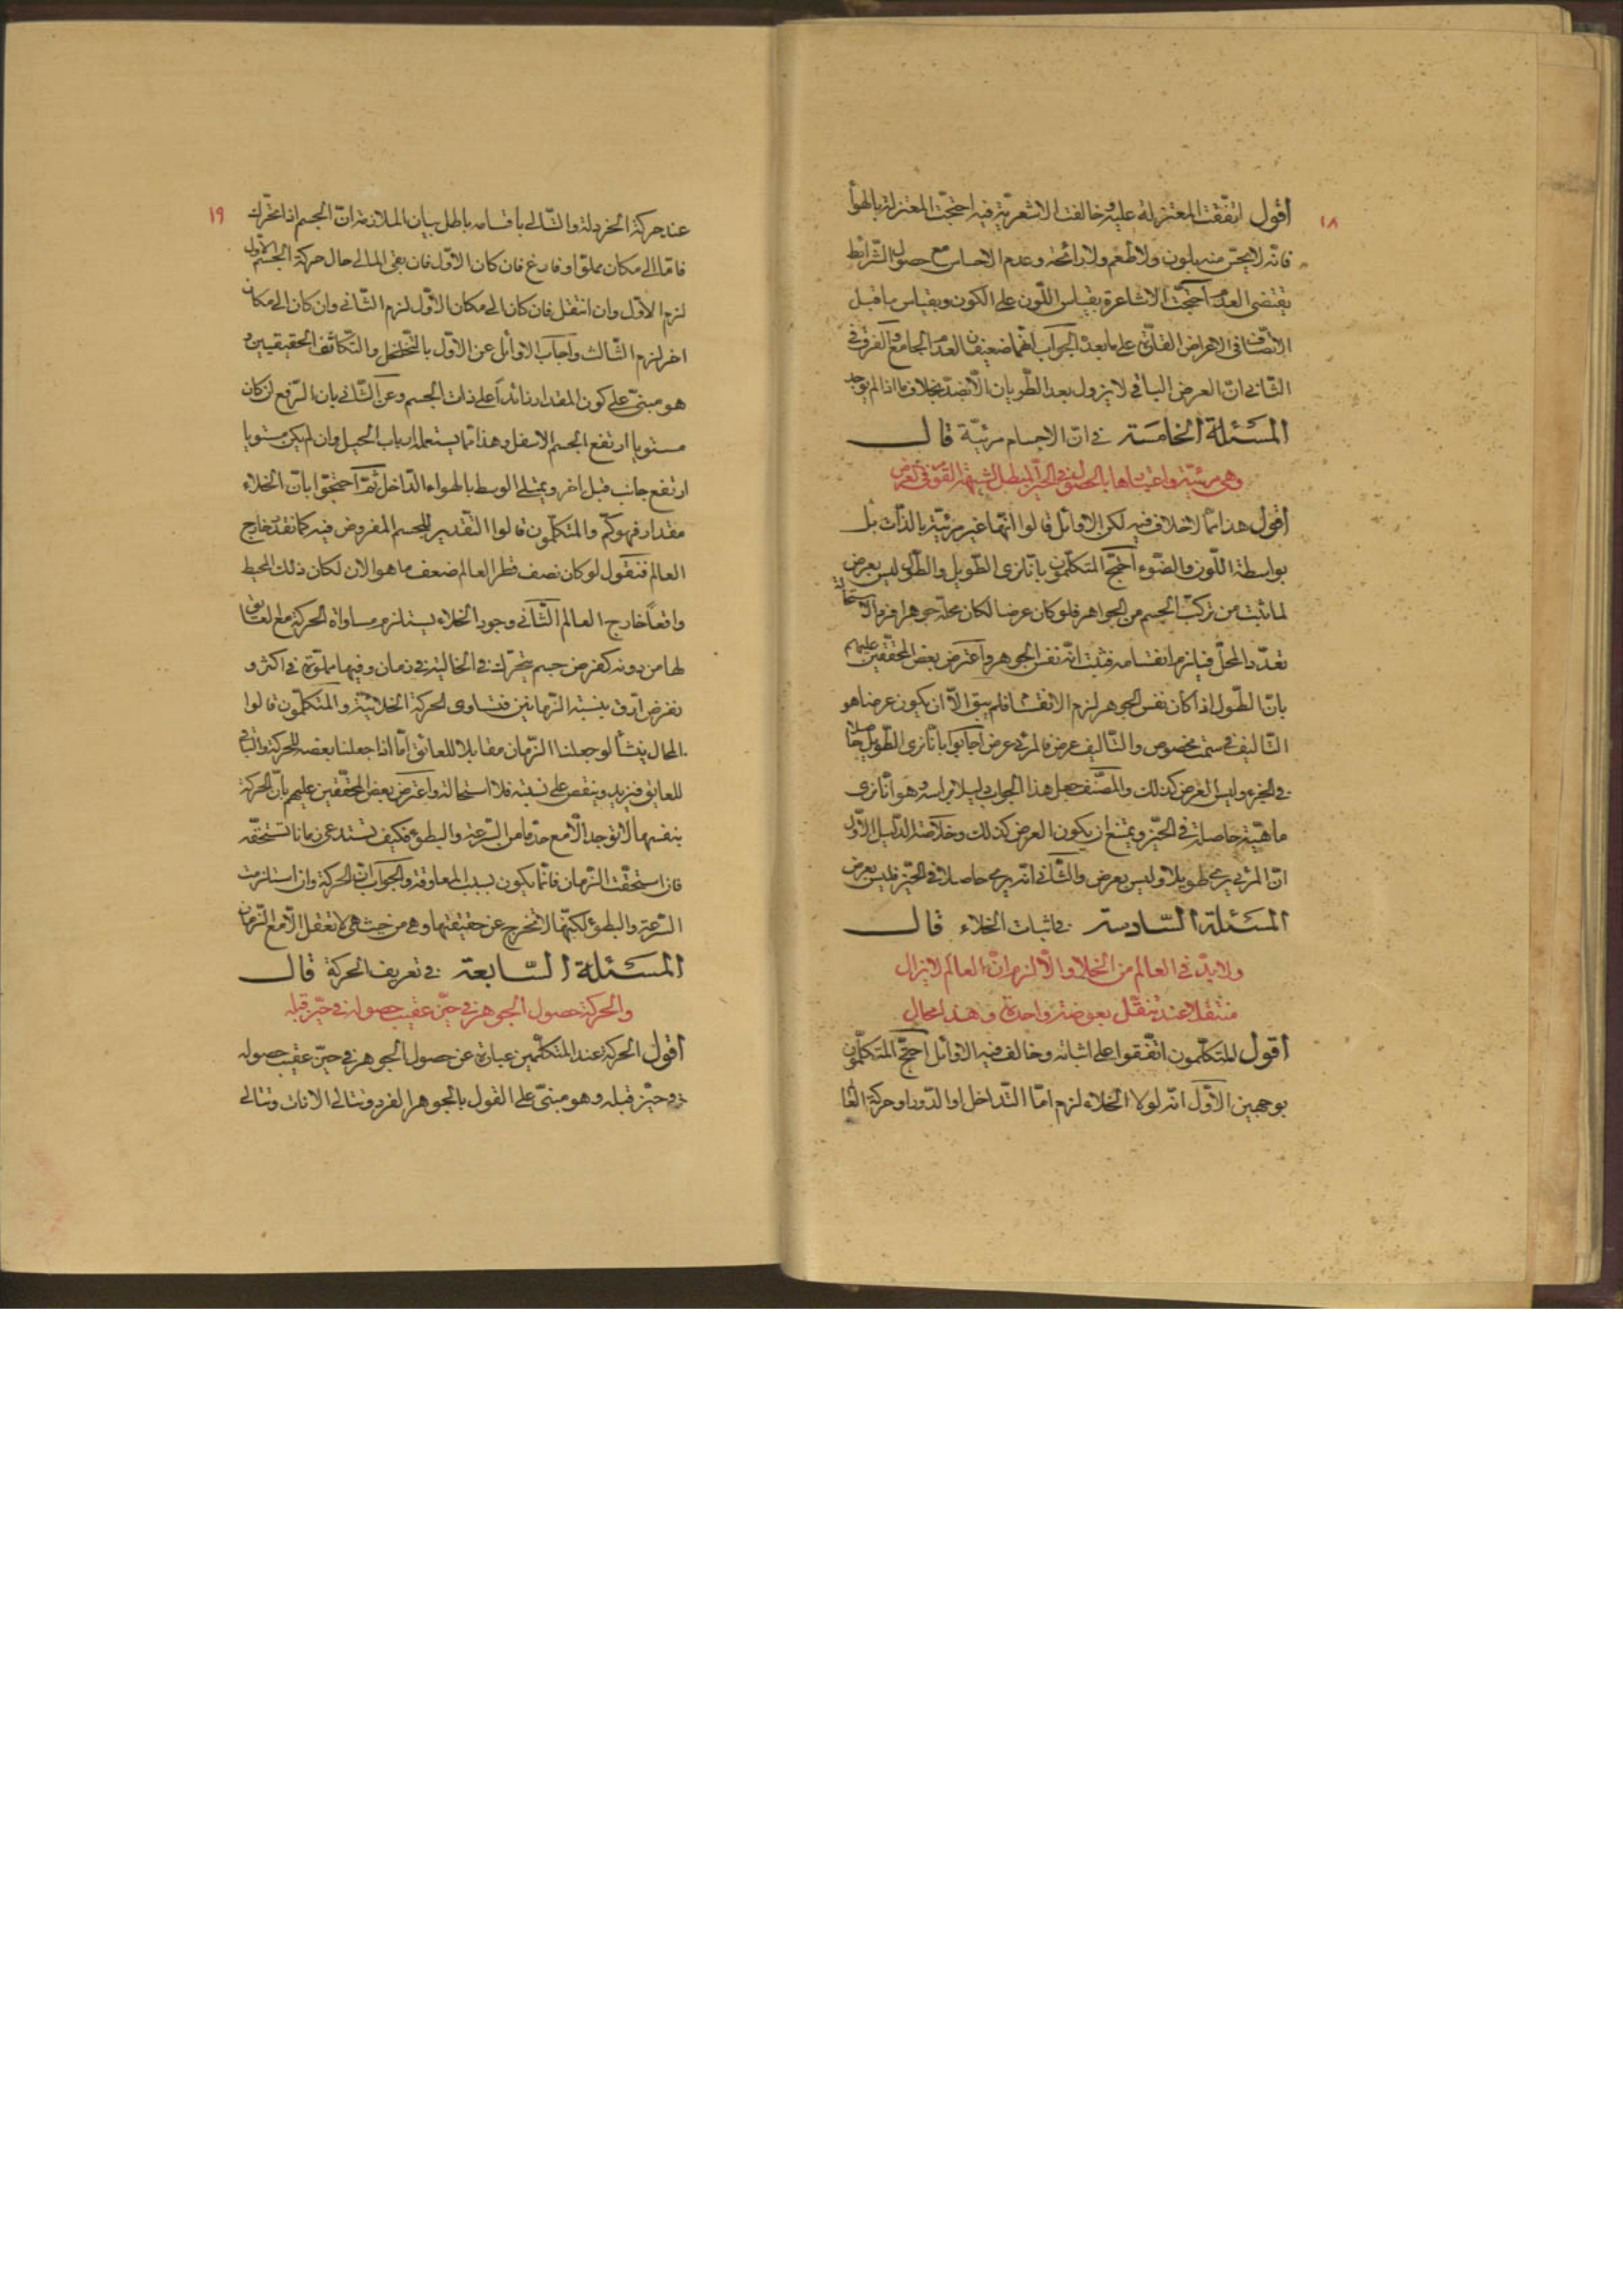 ١٨
أقول اتفقت المعتزلة عليه وخالفت الاشعرية فيه احتجت المعتزلة بالهوا
فانه لا يحس منه بلون ولا طعم ولا رائحة وعدم الاحساس مع حصول الشرايط
يقتضى العدم احتجت الاشاعرة بقياس اللون على الكون وبقياس ما قبل
الاتصاف فى الاعراض القارة على ما بعده الجواب انهما ضعيفان لعدم الجامع والفرق فى
الثانى ان العرض الباقى لا يزول بعد الطريان الا بضد بخلاف ما اذا لم يوجد
المسئلة الخامسة فى ان الاجسام مرئية قال
وهى مرئية واعتبارها بالحصول فى الحيز لمبطل الشبهة القوية فى العرض
أقول هذا مما لا خلاف فيه لكن الاوائل قالوا انها غير مرئية بالذات بل
بواسطة اللون والضوء احتج المتكلمون بانا نرى الطويل والطول ليس بعرض
لما ثبت من تركب الجسم من الجواهر فلو كان عرضا لكان محله جوهرا فردا لاستحالة
تعدد المحل فيلزم انقسامه فثبت انه نفس الجوهر واعترض بعض المحققين عليهم
بان الطول اذا كان نفس الجوهر لزم الانقسام فلم يبق الا ان يكون عرضا هو
التاليف فى سمت مخصوص والتاليف عرض فالمرئى عرض اجابوا بانا نرى الطويل حاصلا
فى الحيز وليس العرض كذلك والمصنف جعل هذا الجواب دليلا براسه وهو انا نرى
ماهية حاصلة فى الحيز ويمتنع ان يكون العرض كذلك وخلاصة الدليل الاول
ان المرئى يرى طويلا وليس بعرض والثانى انه يرى حاصلا فى الحيز فليس بعرض
المسئلة السادسة فى اثبات الخلاء قال
ولا بد فى العالم من الخلاء والا لزم ان العالم لا يزال
منتقلا عند تنقل بعوضة واحدة وهذا محال
أقول المتكلمون اتفقوا على اثباته وخالف فيه الاوائل احتج المتكلمون
بوجهين الاول انه لولا الخلاء لزم اما التداخل او الدور او حركة العا
١٩
عند حركة الخردلة والتالى باقسامه باطل بيان الملازمة ان الجسم اذا تحرك
فاما الى مكان مملو او فارغ فان كان الاول فان بقى المالى حال حركة الجسم الاول
لزم الاول وان انتقل فان كان الى مكان الاول لزم الثانى وان كان الى مكان
اخر لزم الثالث واجاب الاوائل عن الاول بالتخلخل والتكاثف الحقيقيين و
هو مبنى على كون المقدار زائدا على ذات الجسم وعن الثانى بان الرفع ان كان
مستويا ارتفع الجسم الاسفل وهذا مما يستعمله ارباب الحيل وان لم يكن مستويا
ارتفع جانب قبل اخر ويمتلى الوسط بالهواء الداخل ثم احتجوا بان الخلاء
مقدار فهو كم والمتكلمون قالوا التقدير للجسم المفروض فيه كما نقدر خارج
العالم فنقول لو كان نصف قطر العالم ضعف ما هو الان لكان ذلك المحيط
واقعا خارج العالم الثانى وجود الخلاء يستلزم مساواة الحركة مع العائق
لها من دونه كفرض جسم يتحرك فى الخالية فى زمان وفيها مملوة فى اكثر و
نفرض ارق بنسبة الزمانين فتساوى الحركة الخلائية والمتكلمون قالوا
المحال ينشأ لو جعلنا الزمان مقابلا للعائق اما اذا جعلنا بعضه للحركة والباقى
للعائق فيزيد وينقص على نسبته فلا استحالة واعترض بعض المحققين عليهم بان الحركة
بنفسها لا توجد الا مع حد ما من السرعة والبطوء فكيف تستدعى زمانا تستحقه
فان استحقت الزمان فانما يكون بسبب المعاوقة والجواب ان الحركة وان استلزمت
السرعة والبطوء لكنها لا تخرج عن حقيقتها وهى من حيث هى لا تعقل الا مع الزمان
المسئلة السابعة فى تعريف الحركة قال
والحركة حصول الجوهر فى حيز عقيب حصوله فى حيز قبله
أقول الحركة عند المتكلمين عبارة عن حصول الجوهر فى حيز عقيب حصوله
فى حيز قبله وهو مبنى على القول بالجوهر الفرد وتتالى الانات وتتالى